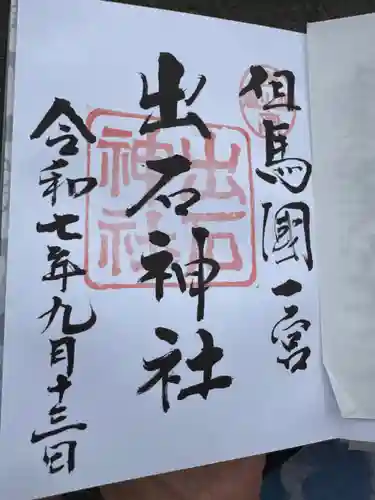 但馬國一宮
出石神社
出石神社
令和七年九月十三日